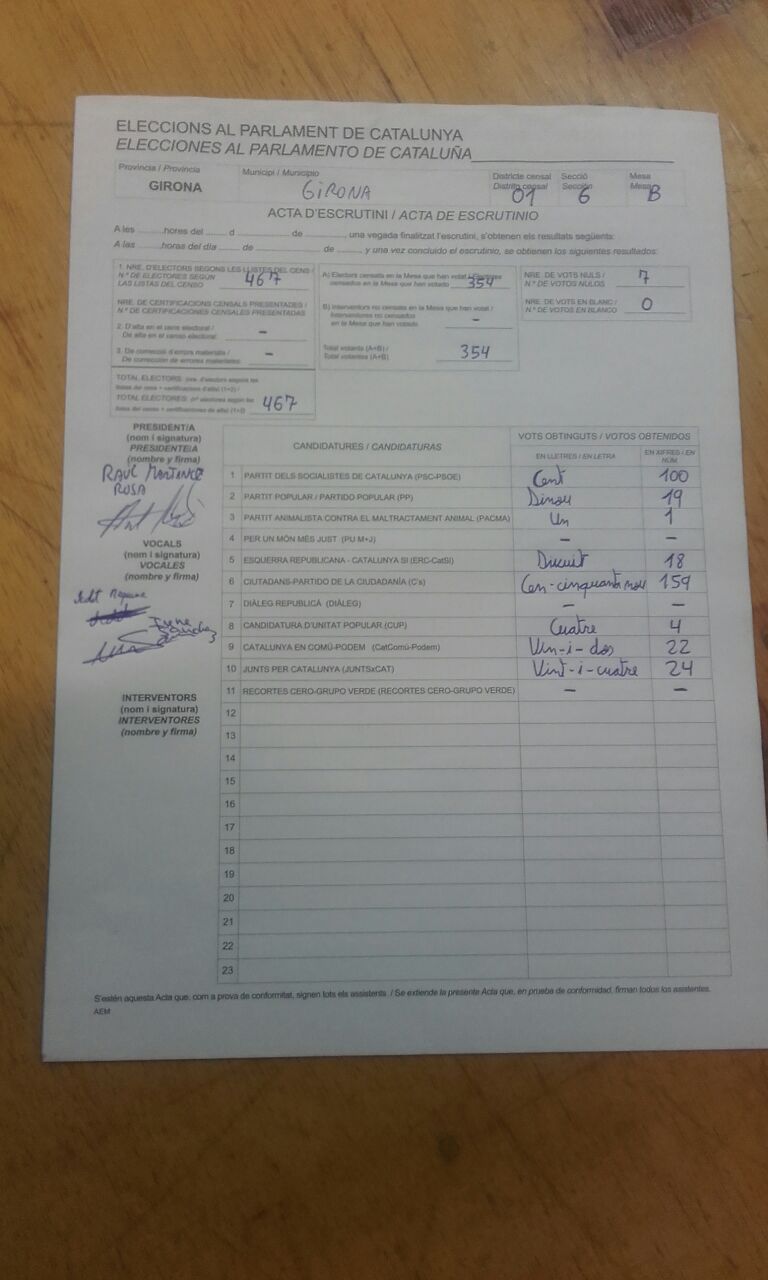 ELECCIONS AL PARLAMENT DE CATALUNYA
ELECCIONES AL PARLAMENTO DE CATALUÑA
Provincia / Provincia
GIRONA
Municipi / Municipio
GIRONA
Districte censal
Distrito censal
01
Secció
Sección
6
Mesa
Mesa
B
ACTA D'ESCRUTINI / ACTA DE ESCRUTINIO
A les ..........hores del ..... d .................. de ............, una vegada finalitzat l'escrutini, s'obtenen els resultats següents:
A las ..........horas del día ...... de .................. de ......... y una vez concluido el escrutinio, se obtienen los siguientes resultados:
1. NRE. D'ELECTORS SEGONS LES LLISTES DEL CENS /
N.º DE ELECTORES SEGÚN
LAS LISTAS DEL CENSO
467
NRE. DE CERTIFICACIONS CENSALS PRESENTADES /
N.º DE CERTIFICACIONES CENSALES PRESENTADAS
2. D'alta en el cens electoral /
De alta en el censo electoral: –
3. De correcció d'errors materials /
De corrección de errores materiales: –
TOTAL ELECTORS: (nre. d'electors segons les
llistes del cens + certificacions d'alta) (1+2) /
TOTAL ELECTORES: (nº electores según las
listas del censo + certificaciones de alta) (1+2) 467
A) Electors censats en la Mesa que han votat / Electores
censados en la Mesa que han votado 354
B) Interventors no censats en la Mesa que han votat /
Interventores no censados
en la Mesa que han votado –
Total votants (A+B) /
Total votantes (A+B) 354
NRE. DE VOTS NULS /
N.º DE VOTOS NULOS 7
NRE. DE VOTS EN BLANC /
N.º DE VOTOS EN BLANCO 0
PRESIDENT/A
(nom i signatura)
PRESIDENTE/A
(nombre y firma)
RAUL
ROSA
VOCALS
(nom i signatura)
VOCALES
(nombre y firma)
Irene
Sánchez
INTERVENTORS
(nom i signatura)
INTERVENTORES
(nombre y firma)
CANDIDATURES / CANDIDATURAS
VOTS OBTINGUTS / VOTOS OBTENIDOS
EN LLETRES / EN LETRA
EN XIFRES / EN NÚM.
1 PARTIT DELS SOCIALISTES DE CATALUNYA (PSC-PSOE) Cent 100
2 PARTIT POPULAR / PARTIDO POPULAR (PP) Dinou 19
3 PARTIT ANIMALISTA CONTRA EL MALTRACTAMENT ANIMAL (PACMA) Un 1
4 PER UN MÓN MÉS JUST (PU M+J) – –
5 ESQUERRA REPUBLICANA - CATALUNYA SÍ (ERC-CatSí) Divuit 18
6 CIUTADANS-PARTIDO DE LA CIUDADANÍA (C's) Cen-cinquanta nou 159
7 DIÀLEG REPUBLICÀ (DIÀLEG) – –
8 CANDIDATURA D'UNITAT POPULAR (CUP) Cuatre 4
9 CATALUNYA EN COMÚ-PODEM (CatComú-Podem) Vin-i-dos 22
10 JUNTS PER CATALUNYA (JUNTSxCAT) Vint-i-cuatre 24
11 RECORTES CERO-GRUPO VERDE (RECORTES CERO-GRUPO VERDE) – –
12
13
14
15
16
17
18
19
20
21
22
23
S'estén aquesta Acta que, com a prova de conformitat, signen tots els assistents. / Se extiende la presente Acta que, en prueba de conformidad, firman todos los asistentes.
AEM